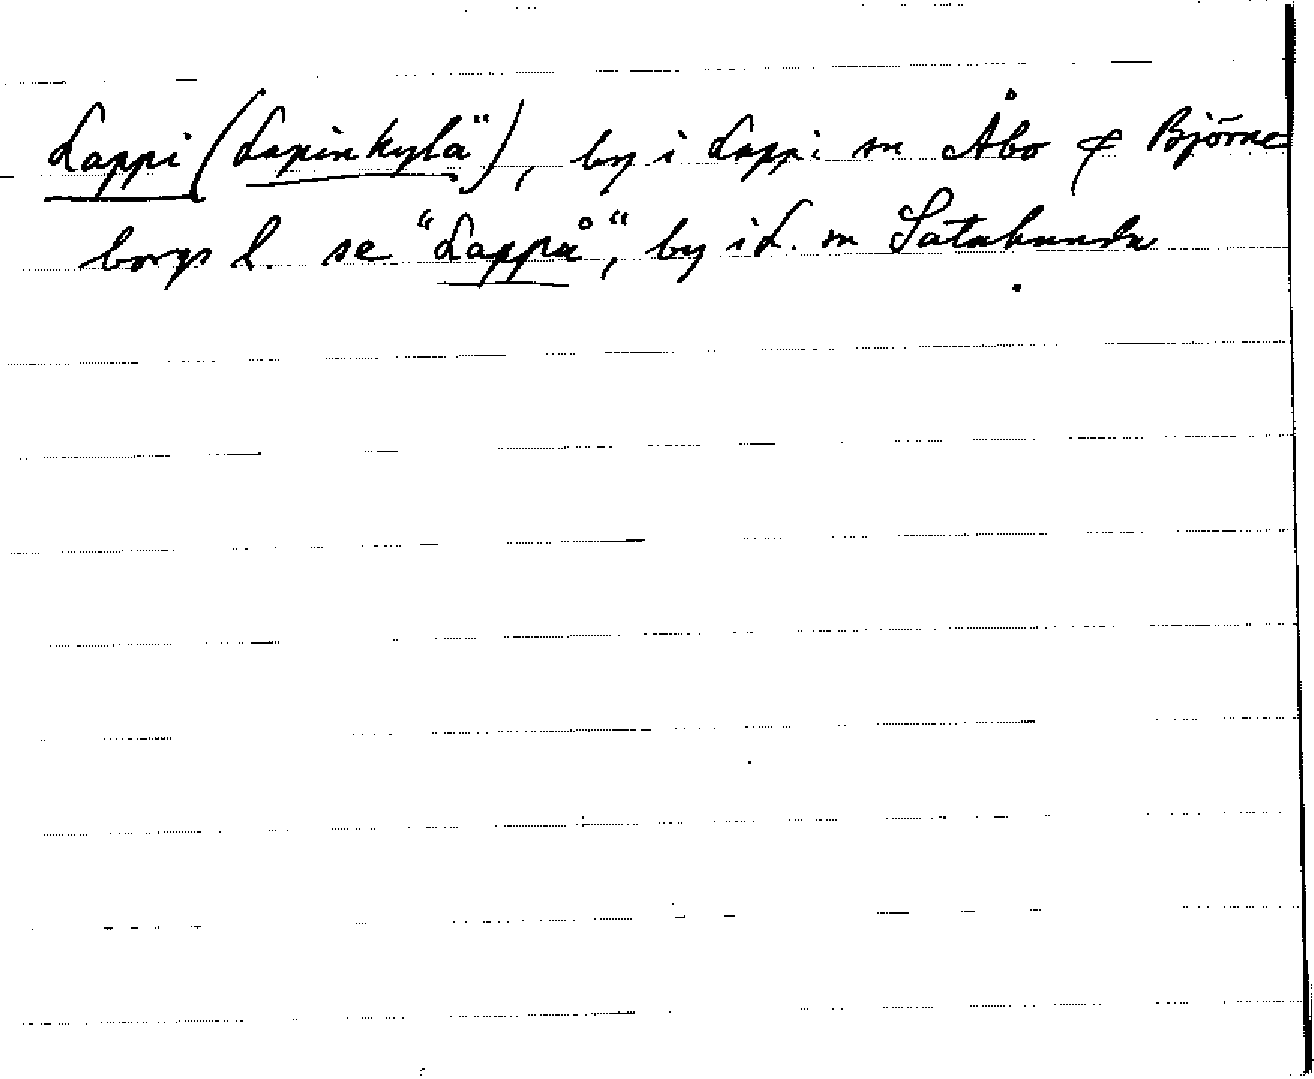 Lappi (Lapinkylä), by i Lappi sn Åbo & Björne
borgs l. se "Lappå", by i L. sn Satakunda